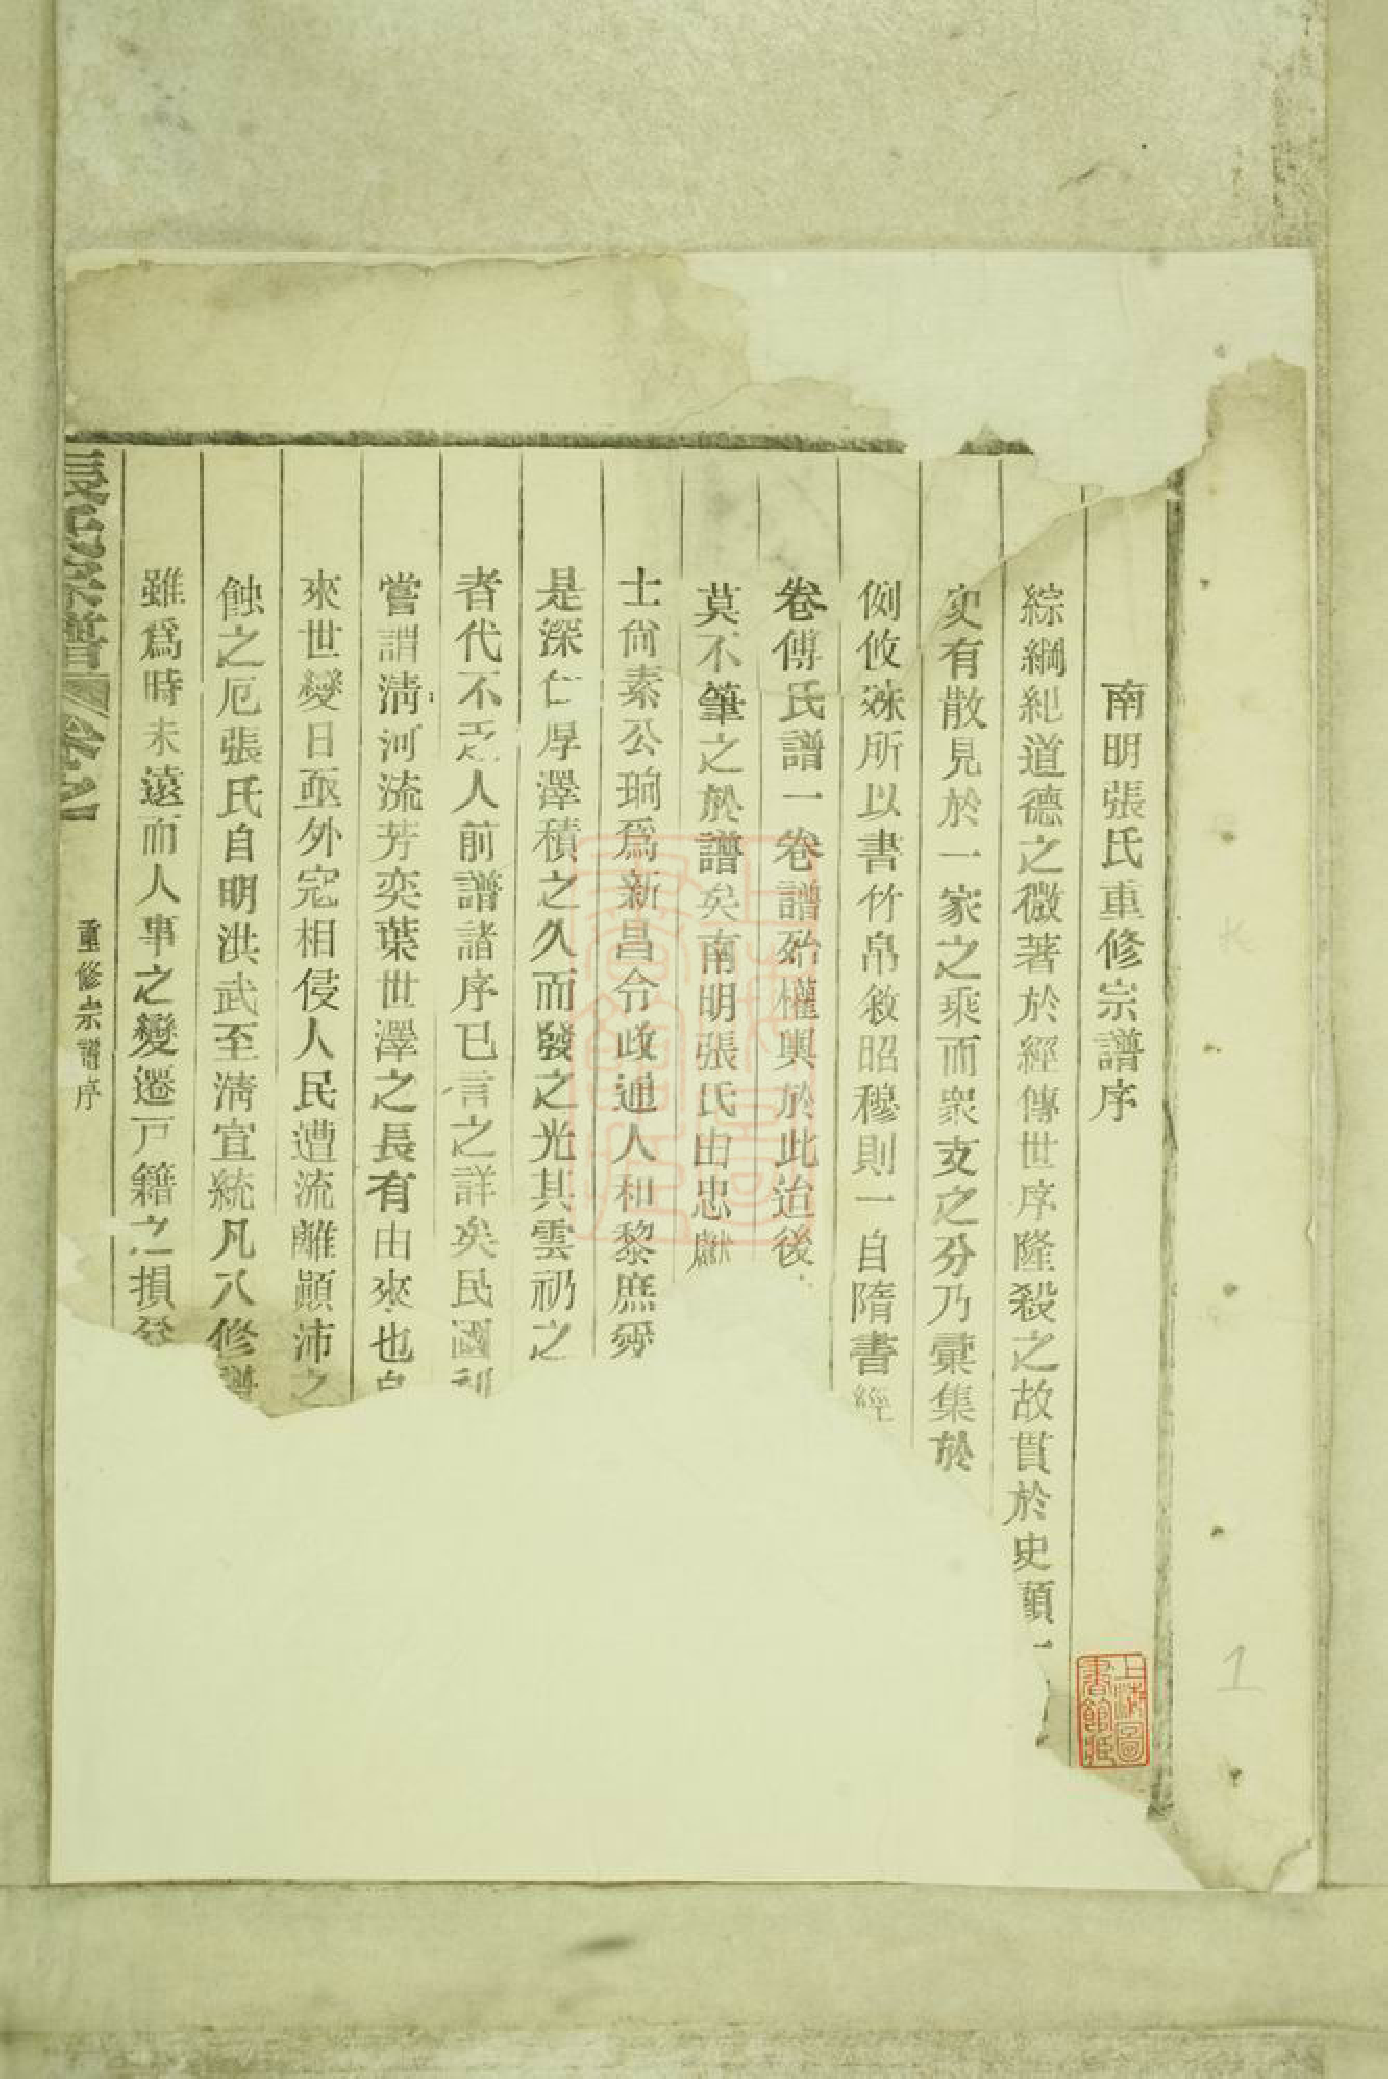 南明張氏重修宗譜序
綜綱紀道德之微著於經傳世序隆殺之故貫於史類一
史有散見於一家之乘而衆支之分乃彙集於
例攸殊所以書竹帛敘昭穆則一自隋書經
卷傅氏譜一卷譜殆權輿於此迨後
莫不筆之於譜矣南明張氏由忠獻
士尙素公珦爲新昌令政通人和黎庶
是深仁厚澤積之久而發之光其雲礽之
者代不乏人前譜諸序已言之詳矣民國初
嘗謂清河流芳奕葉世澤之長有由來也
來世變日亟外寇相侵人民遭流離顚沛之
蝕之厄張氏自明洪武至淸宣統凡八修譜
雖爲時未遠而人事之變遷戸籍之損
張氏宗譜 卷之一 重修宗譜序
上海圖書館藏
1